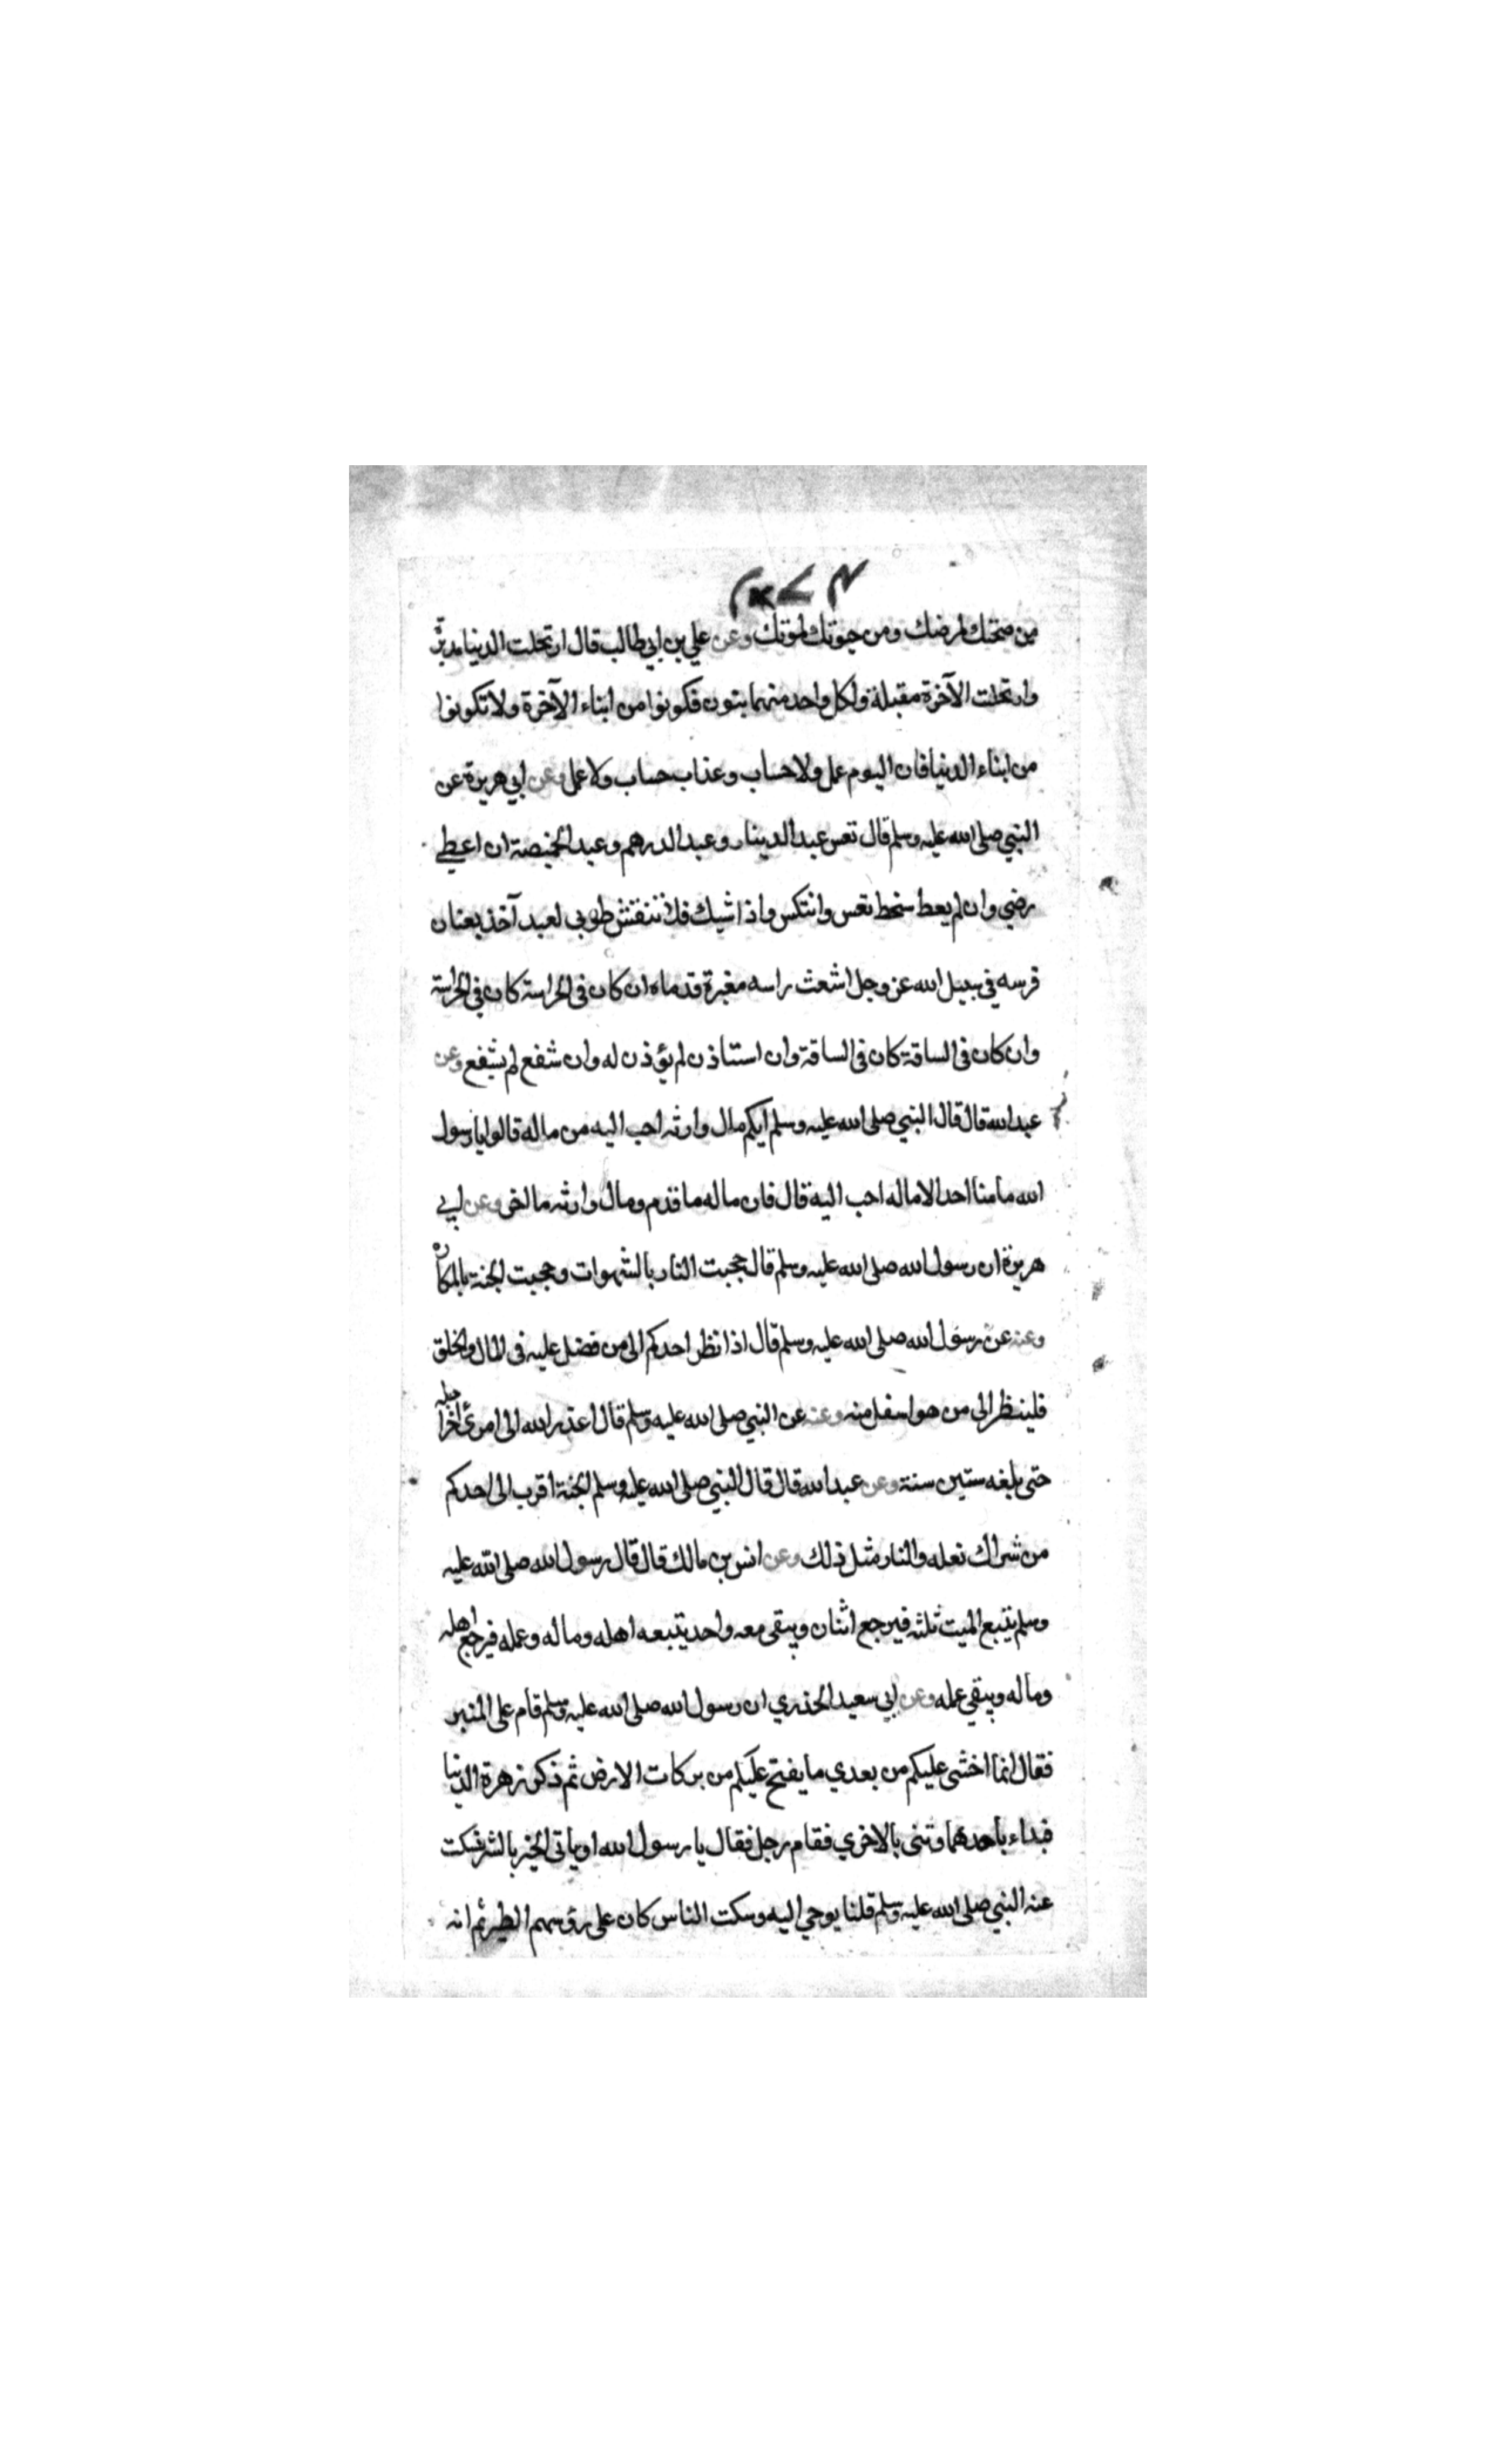 من صحتك لمرضك ومن حيوتك لموتك وعن علي بن ابي طالب قال ارتحلت الدنيا مدبرة
وارتحلت الآخرة مقبلة ولكل واحد منهما بنون فكونوا من ابناء الآخرة ولا تكونوا
من ابناء الدنيا فان اليوم عمل ولا حساب وعذاب حساب ولا عمل وعن ابي هريرة عن
النبي صلى الله عليه وسلم قال تعس عبد الدينار وعبد الدرهم وعبد الخميصة ان اعطي
رضي وان لم يعط سخط تعس وانتكس واذا شيك فلا تنقش طوبى لعبد آخذ بعنان
فرسه في سبيل الله عز وجل اشعث راسه مغبرة قدماه ان كان في الحراسة كان في الحراسة
وان كان في الساقة كان في الساقة وان استاذن لم يؤذن له وان شفع لم يشفع وعن
عبد الله قال قال النبي صلى الله عليه وسلم ايكم مال وارثه احب اليه من ماله قالوا يا رسول
الله ما منا احد الا ماله احب اليه قال فان ماله ما قدم ومال وارثه ما اخر وعن ابي
هريرة ان رسول الله صلى الله عليه وسلم قال حجبت النار بالشهوات وحجبت الجنة بالمكاره
وعنه عن رسول الله صلى الله عليه وسلم قال اذا نظر احدكم الى من فضل عليه في المال والخلق
فلينظر الى من هو اسفل منه وعنه عن النبي صلى الله عليه وسلم قال اعذر الله الى امرئ اخر اجله
حتى بلغه ستين سنة وعن عبد الله قال قال النبي صلى الله عليه وسلم الجنة اقرب الى احدكم
من شراك نعله والنار مثل ذلك وعن انس بن مالك قال قال رسول الله صلى الله عليه
وسلم يتبع الميت ثلثه فيرجع اثنان ويبقى معه واحد يتبعه اهله وماله وعمله فيرجع اهله
وماله ويبقي عمله وعن ابي سعيد الخدري ان رسول الله صلى الله عليه وسلم قام على المنبر
فقال انما اخشى عليكم من بعدي ما يفتح عليكم من بركات الارض ثم ذكر زهرة الدنيا
فبداء باحدهما وثنى بالاخري فقام رجل فقال يا رسول الله او ياتي الخير بالشر فسكت
عنه النبي صلى الله عليه وسلم قلنا يوحي اليه وسكت الناس كان على رؤسهم الطير ثم انه